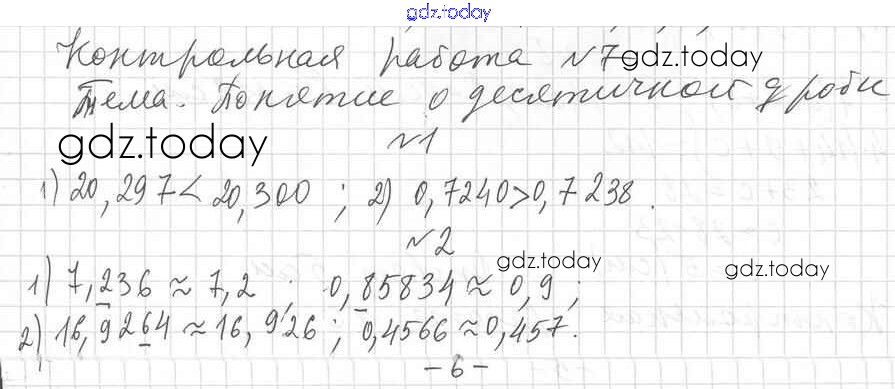 gdz.today
Контрольная работа №7 gdz.today
Тема. Понятие о десятичной дроби
gdz.today
№1
1) 20,297 < 20,300 ; 2) 0,7240 > 0,7238.
№2
gdz.today
gdz.today
1) 7,236 ≈ 7,2 ; 0,85834 ≈ 0,9 ;
2) 16,9264 ≈ 16,926 ; 0,4566 ≈ 0,457.
- 6 -